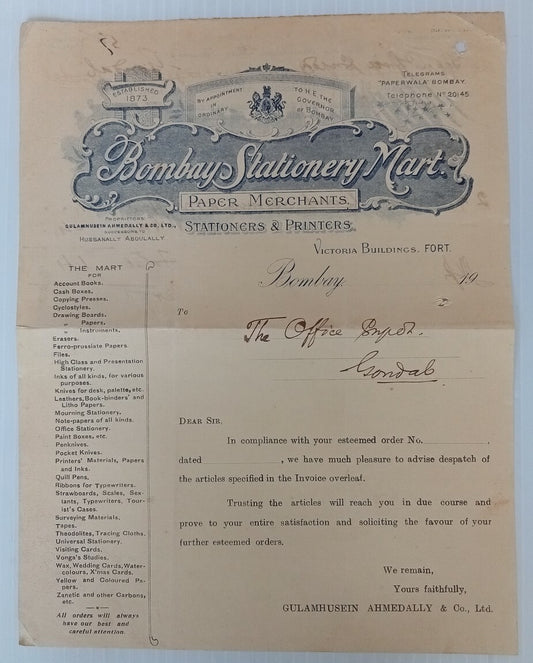 ESTABLISHED
1873.
BY APPOINTMENT
IN
ORDINARY
TO H.E. THE
GOVERNOR
OF BOMBAY
TELEGRAMS
"PAPERWALA" BOMBAY.
Telephone No 2045
Bombay Stationery Mart.
PAPER MERCHANTS.
STATIONERS & PRINTERS.
PROPRIETORS
GULAMHUSEIN AHMEDALLY & CO., LTD.,
SUCCESSORS TO
HUSSANALLY ABDULALLY.
VICTORIA BUILDINGS, FORT.
Bombay, 19
THE MART
FOR
Account Books.
Cash Boxes.
Copying Presses.
Cyclostyles.
Drawing Boards.
„ Papers.
„ Instruments.
Erasers.
Ferro-prussiate Papers.
Files.
High Class and Presentation
Stationery.
Inks of all kinds, for various
purposes.
Knives for desk, palette, etc.
Leathers, Book-binders' and
Litho Papers.
Mourning Stationery.
Note-papers of all kinds.
Office Stationery.
Paint Boxes, etc.
Penknives.
Pocket Knives.
Printers' Materials, Papers
and Inks.
Quill Pens,
Ribbons for Typewriters.
Strawboards, Scales, Sex-
tants, Typewriters, Tour-
ist's Cases.
Surveying Materials.
Tapes.
Theodolites, Tracing Cloths.
Universal Stationery.
Visiting Cards.
Vonga's Studies.
Wax, Wedding Cards, Water-
colours, X'mas Cards.
Yellow and Coloured Pa-
pers.
Zanetic and other Carbons,
etc.
All orders will always
have our best and
careful attention.
To
The Office
Gondal
DEAR SIR,
In compliance with your esteemed order No. ,
dated , we have much pleasure to advise despatch of
the articles specified in the Invoice overleaf.
Trusting the articles will reach you in due course and
prove to your entire satisfaction and soliciting the favour of your
further esteemed orders.
We remain,
Yours faithfully,
GULAMHUSEIN AHMEDALLY & Co., Ltd.